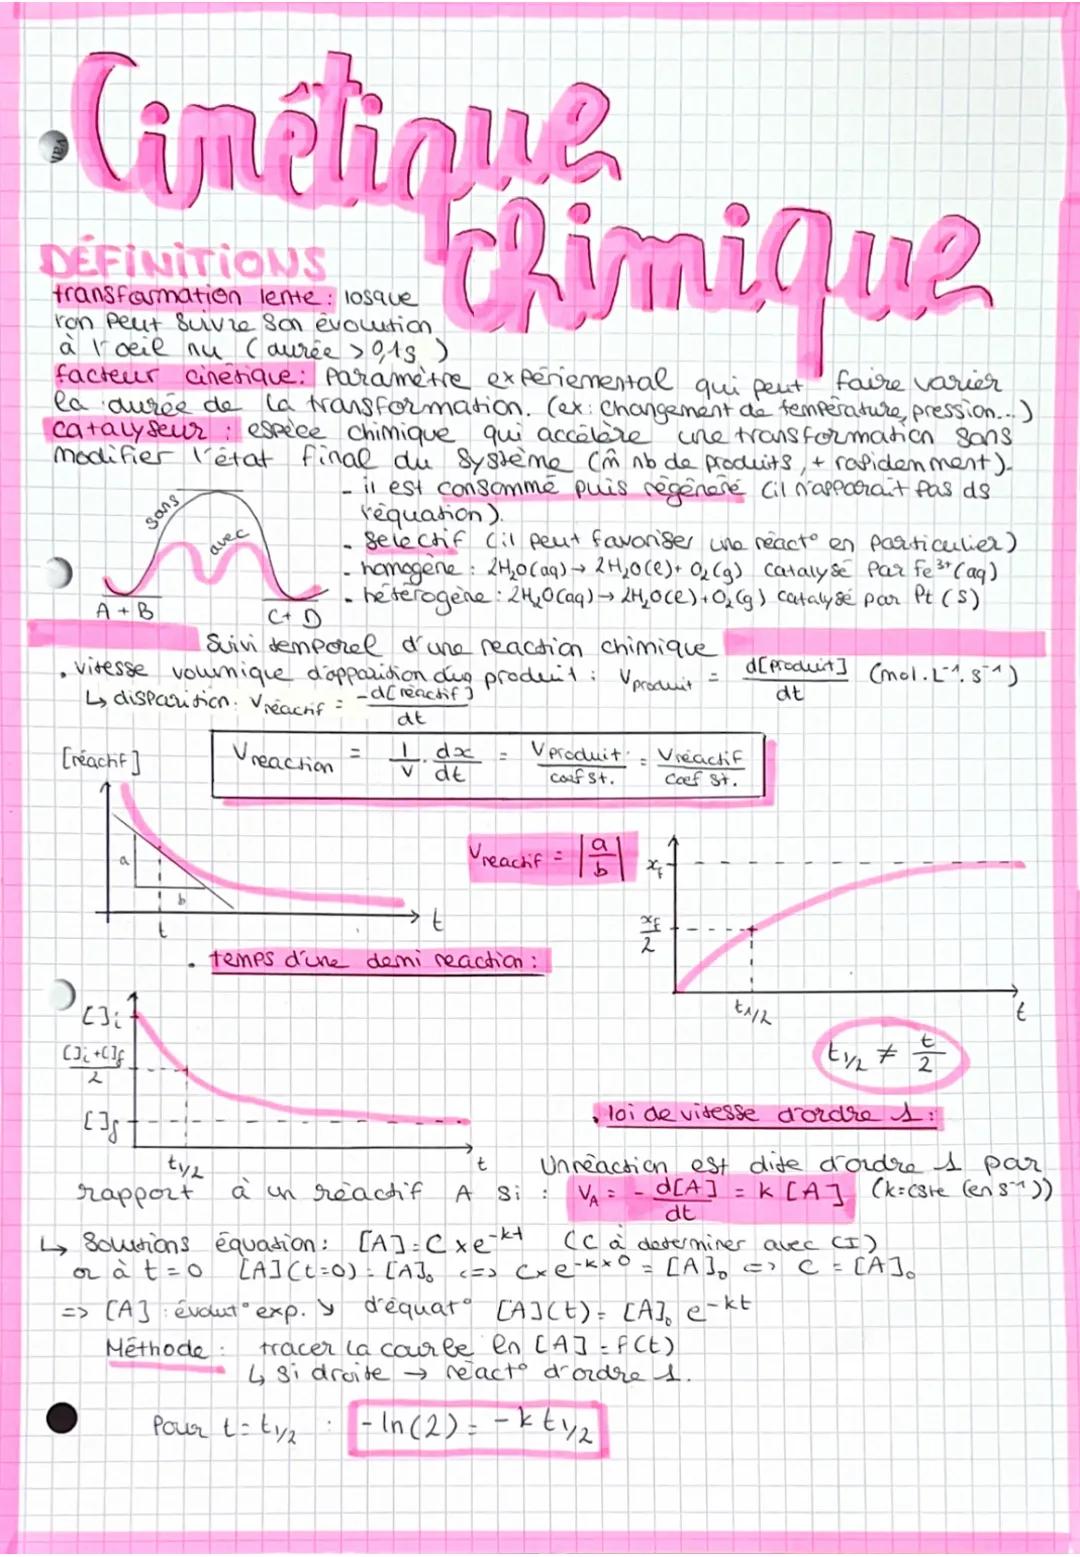 Cinétique
chimique
DÉFINITIONS
transformation lente : losque
l'on peut suivre son évolution
à l'oeil nu (durée > 0,1s )
facteur cinétique : Paramètre expériemental qui peut faire varier
la durée de la transformation. (ex: changement de température, pression...)
catalyseur : espèce chimique qui accélère une transformation sans
modifier l'état final du système (m̂ nb de produits, + rapidemment).
- il est consommé puis régénéré (il n'apparait pas ds
l'équation).
- Selectif (il peut favoriser une réact° en particulier)
- homogène : 2H₂O(aq) → 2H₂O(l) + O₂(g) catalysé par Fe³⁺(aq)
- hétérogène : 2H₂O(aq) → 2H₂O(l) + O₂(g) catalysé par Pt (s)
sans
avec
A + B
C + D
Suivi temporel d'une reaction chimique
. vitesse voumique d'apparition d'un produit : Vproduit = d[produit]/dt (mol.L⁻¹.s⁻¹)
↳ disparition : Vréactif = -d[réactif]/dt
Vreaction = 1/V . dx/dt = Vproduit/coef st. = Vréactif/coef st.
[réactif]
a
b
t
t
Vreactif = |a/b|
xf
xf/2
t1/2
t
. temps d'une demi reaction :
[]i
[]i+[]f/2
[]f
t1/2
t
t1/2 ≠ t/2
. loi de vitesse d'ordre 1 :
Un réaction est dite d'ordre 1 par
rapport à un réactif A si : VA = - d[A]/dt = k [A] (k=cste (en s⁻¹))
↳ Solutions équation : [A] = C x e^-kt (C à determiner avec CI)
or à t = 0 [A](t=0) = [A]₀ <=> C x e^-k×0 = [A]₀ => C = [A]₀
=> [A] : évolut° exp. ↘ d'équat° [A](t) = [A]₀ e^-kt
Méthode : tracer la courbe ln [A] = f(t)
↳ Si droite → réact° d'ordre 1.
Pour t = t1/2 : -ln(2) = -k t1/2